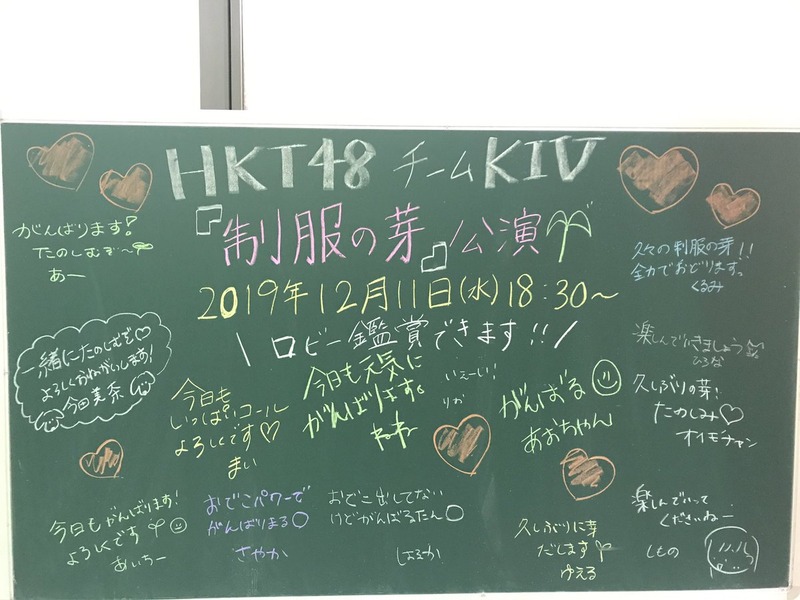 HKT48 チームKIV
『制服の芽』公演
2019年12月11日(水)18:30～
\ロビー鑑賞できます!!/
がんばります!
たのしむぞ〜
あー
久々の制服の芽!!
全力でおどりますっ
くるみ
一緒にたのしむぞ♡
よろしくおねがいしまぁす!
今田美奈
今日も
いっぱいコール
よろしくです♡
まい
今日も元気に
がんばります
いぇーい!
りか
がんばる
あおちゃん
楽しんでいきましょう
ひろな
久しぶりの芽!
たのしみ♡
オイモチャン
今日もがんばります!
よろしくです
あいちー
おでこパワーで
がんばりまる○
さやか
おでこ出してない
けどがんばるたん○
はるか
久しぶりに芽
だします
ゆえる
楽しんでいって
くださいねー
しもの